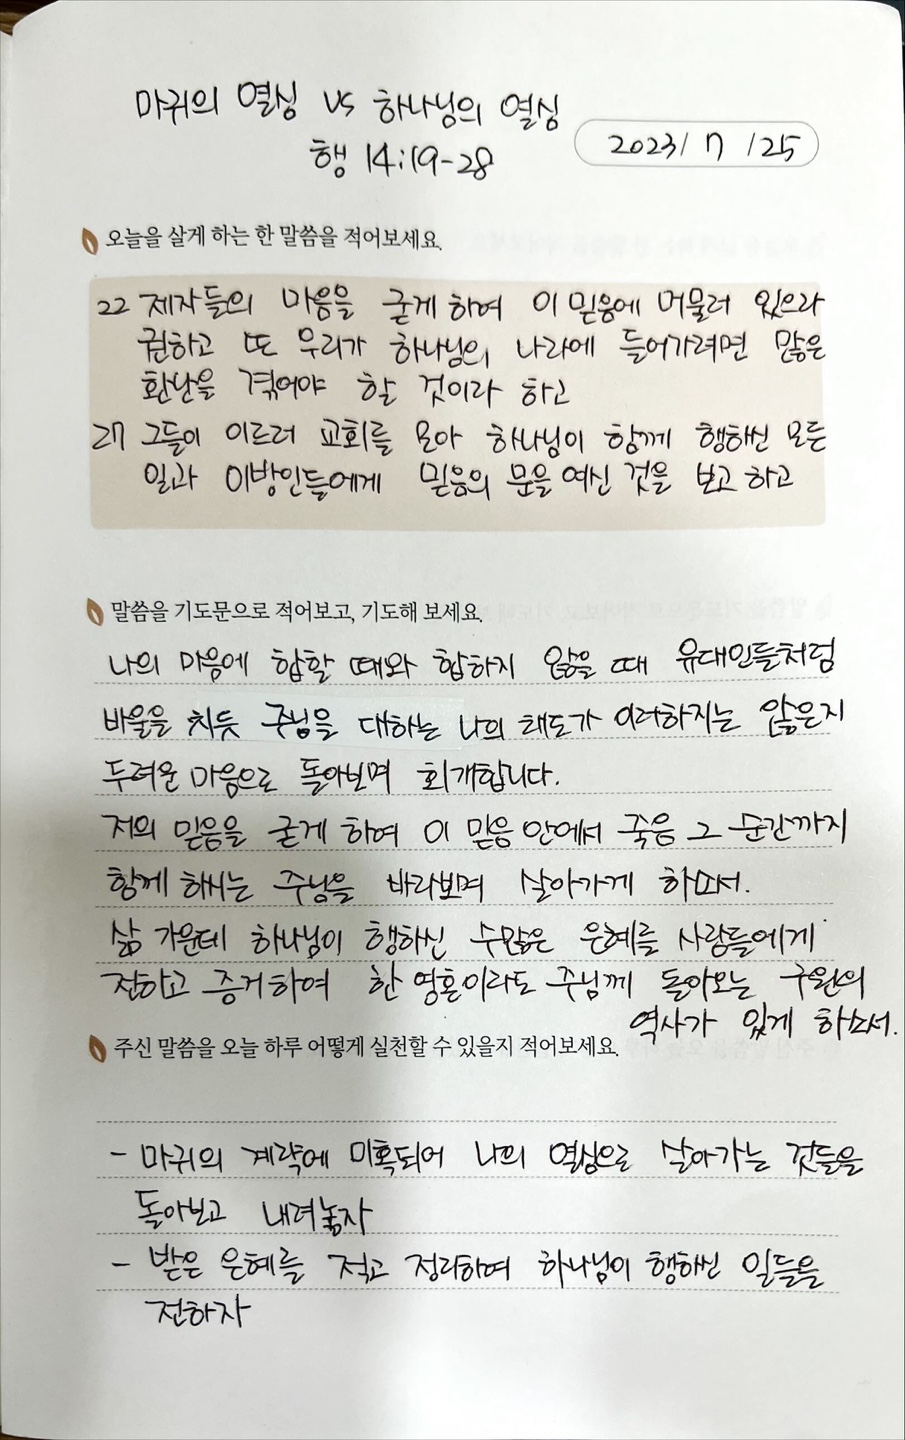 마귀의 열심 vs 하나님의 열심
행 14:19-28
2023/ 7 /25
오늘을 살게 하는 한 말씀을 적어보세요.
22 제자들의 마음을 굳게 하여 이 믿음에 머물러 있으라
권하고 또 우리가 하나님의 나라에 들어가려면 많은
환난을 겪어야 할 것이라 하고
27 그들이 이르러 교회를 모아 하나님이 함께 행하신 모든
일과 이방인들에게 믿음의 문을 여신 것을 보고 하고
말씀을 기도문으로 적어보고, 기도해 보세요.
나의 마음에 합할 때와 합하지 않을 때 유대인들처럼
바울을 치듯 주님을 대하는 나의 태도가 이러하지는 않은지
두려운 마음으로 돌아보며 회개합니다.
저의 믿음을 굳게 하여 이 믿음 안에서 죽음 그 순간까지
함께 하시는 주님을 바라보며 살아가게 하소서.
삶 가운데 하나님이 행하신 수많은 은혜를 사람들에게
전하고 증거하여 한 영혼이라도 주님께 돌아오는 구원의
역사가 있게 하소서.
주신 말씀을 오늘 하루 어떻게 실천할 수 있을지 적어보세요.
- 마귀의 계략에 미혹되어 나의 열심으로 살아가는 것들을
돌아보고 내려놓자
- 받은 은혜를 적고 정리하여 하나님이 행하신 일들을
전하자